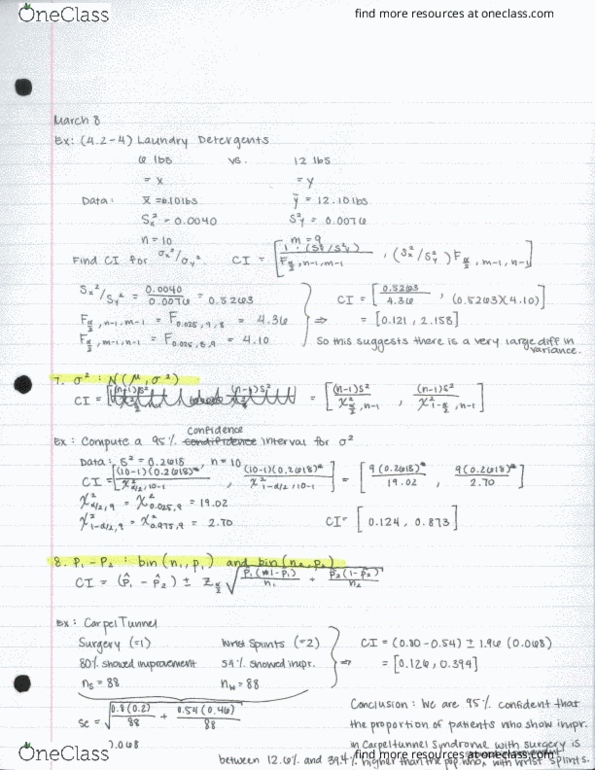 OneClass
find more resources at oneclass.com
March 8
Ex: (4.2-4) Laundry Detergents
6 lbs vs. 12 lbs
= x = y
Data: x̄ = 6.10 lbs ȳ = 12.10 lbs
Sx² = 0.0040 S²y = 0.0076
n = 10 m = 9
Find CI for σx²/σy². CI = [1 · (Sx²/Sy²) / Fα/2, n-1, m-1 , (Sx²/Sy²) Fα/2, m-1, n-1]
Sx²/Sy² = 0.0040/0.0076 = 0.5263 CI = [0.5263/4.36 , (0.5263)(4.10)]
Fα/2, n-1, m-1 = F0.025, 9, 8 = 4.36 ⇒ = [0.121, 2.158]
Fα/2, m-1, n-1 = F0.025, 8, 9 = 4.10 So this suggests there is a very large diff in
variance.
7. σ² : N(μ, σ²)
CI = = [(n-1)S²/χ²α/2, n-1 , (n-1)S²/χ²1-α/2, n-1]
confidence
Ex: Compute a 95% interval for σ²
Data: S² = 0.2618, n = 10
CI = [(10-1)(0.2618)/χ²α/2, 10-1 , (10-1)(0.2618)/χ²1-α/2, 10-1] = [9(0.2618)/19.02 , 9(0.2618)/2.70]
χ²α/2, 9 = χ²0.025, 9 = 19.02
χ²1-α/2, 9 = χ²0.975, 9 = 2.70 CI = [0.124, 0.873]
8. P₁ - P₂ : bin(n₁, p₁) and bin(n₂, p₂)
CI = (p̂₁ - p̂₂) ± Zα/2 √(p̂₁(1-p̂₁)/n₁ + p̂₂(1-p̂₂)/n₂)
Ex: Carpel Tunnel
Surgery (=1) Wrist Splints (=2) CI = (0.80 - 0.54) ± 1.96 (0.068)
80% showed improvement 54% showed impr. ⇒ = [0.126, 0.394]
ns = 88 nw = 88
se = √(0.8(0.2)/88 + 0.54(0.46)/88) Conclusion: We are 95% confident that
the proportion of patients who show impr.
0.068 in Carpel tunnel Syndrome with surgery is
between 12.6% and 39.4% higher than the pop. who, with wrist splints.
OneClass
find more resources at oneclass.com